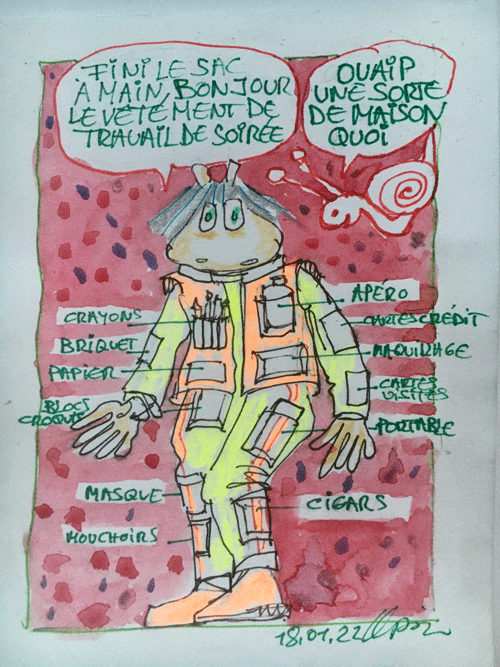 FINI LE SAC
À MAIN, BONJOUR
LE VÊTEMENT DE
TRAVAIL DE SOIRÉE
OUAIP
UNE SORTE
DE MAISON
QUOI
CRAYONS
BRIQUET
PAPIER
BLOCS
CROQUIS
MASQUE
MOUCHOIRS
APÉRO
CARTES CRÉDIT
MAQUILLAGE
CARTES
VISITES
PORTABLE
CIGARS
18.01.22